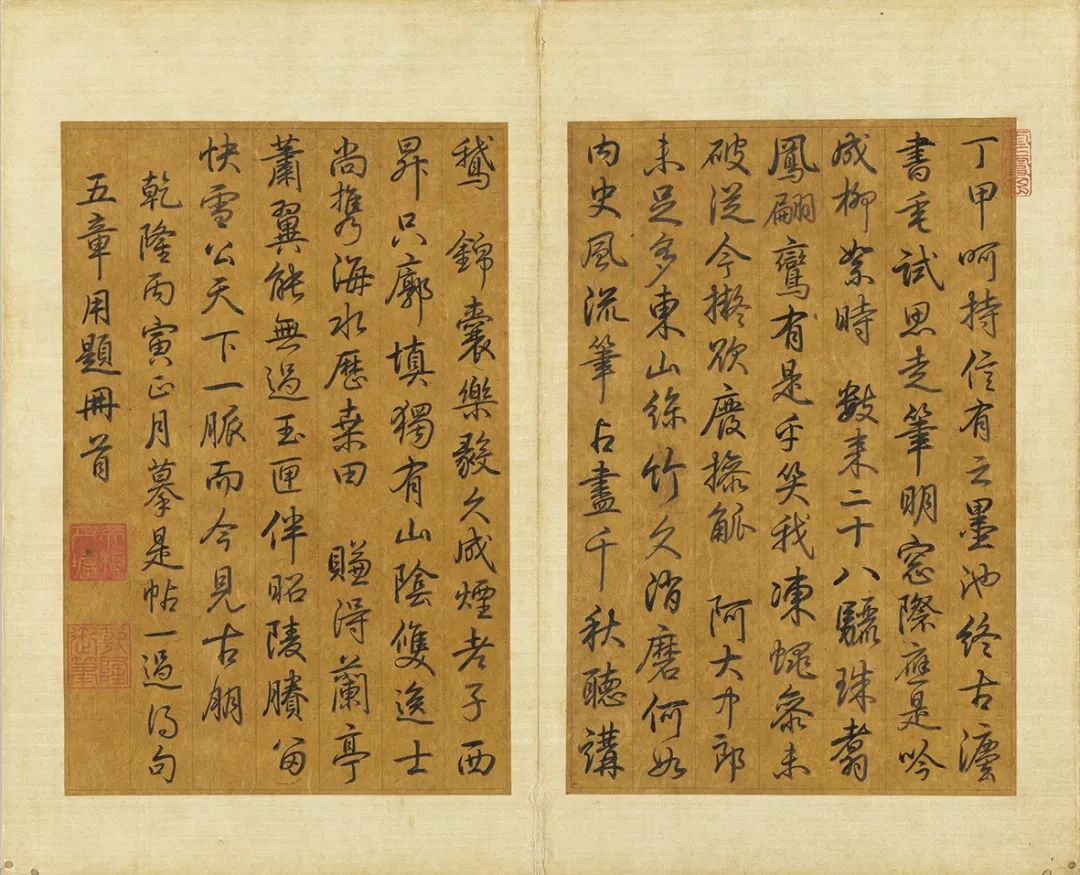 丁甲呵持信有之墨池終古灋
書垂試思走筆明窓際應是吟
成柳絮時　數來二十八驪珠翥
鳳翩鸞有是乎笑我凍蠅參未
破從今擬欲廢操觚　阿大中郎
未足多東山絲竹久消磨何如
內史風流筆占盡千秋聽講
鵝　錦囊樂毅久成煙老子西
昇只廓填獨有山陰雙逸士
尚攜海水歷桑田　賺得蘭亭
蕭翼能無過玉匣伴昭陵賸留
快雪公天下一脈而今見古朋
乾隆丙寅正月摹是帖一過得句
五章用題冊首
乾隆御筆